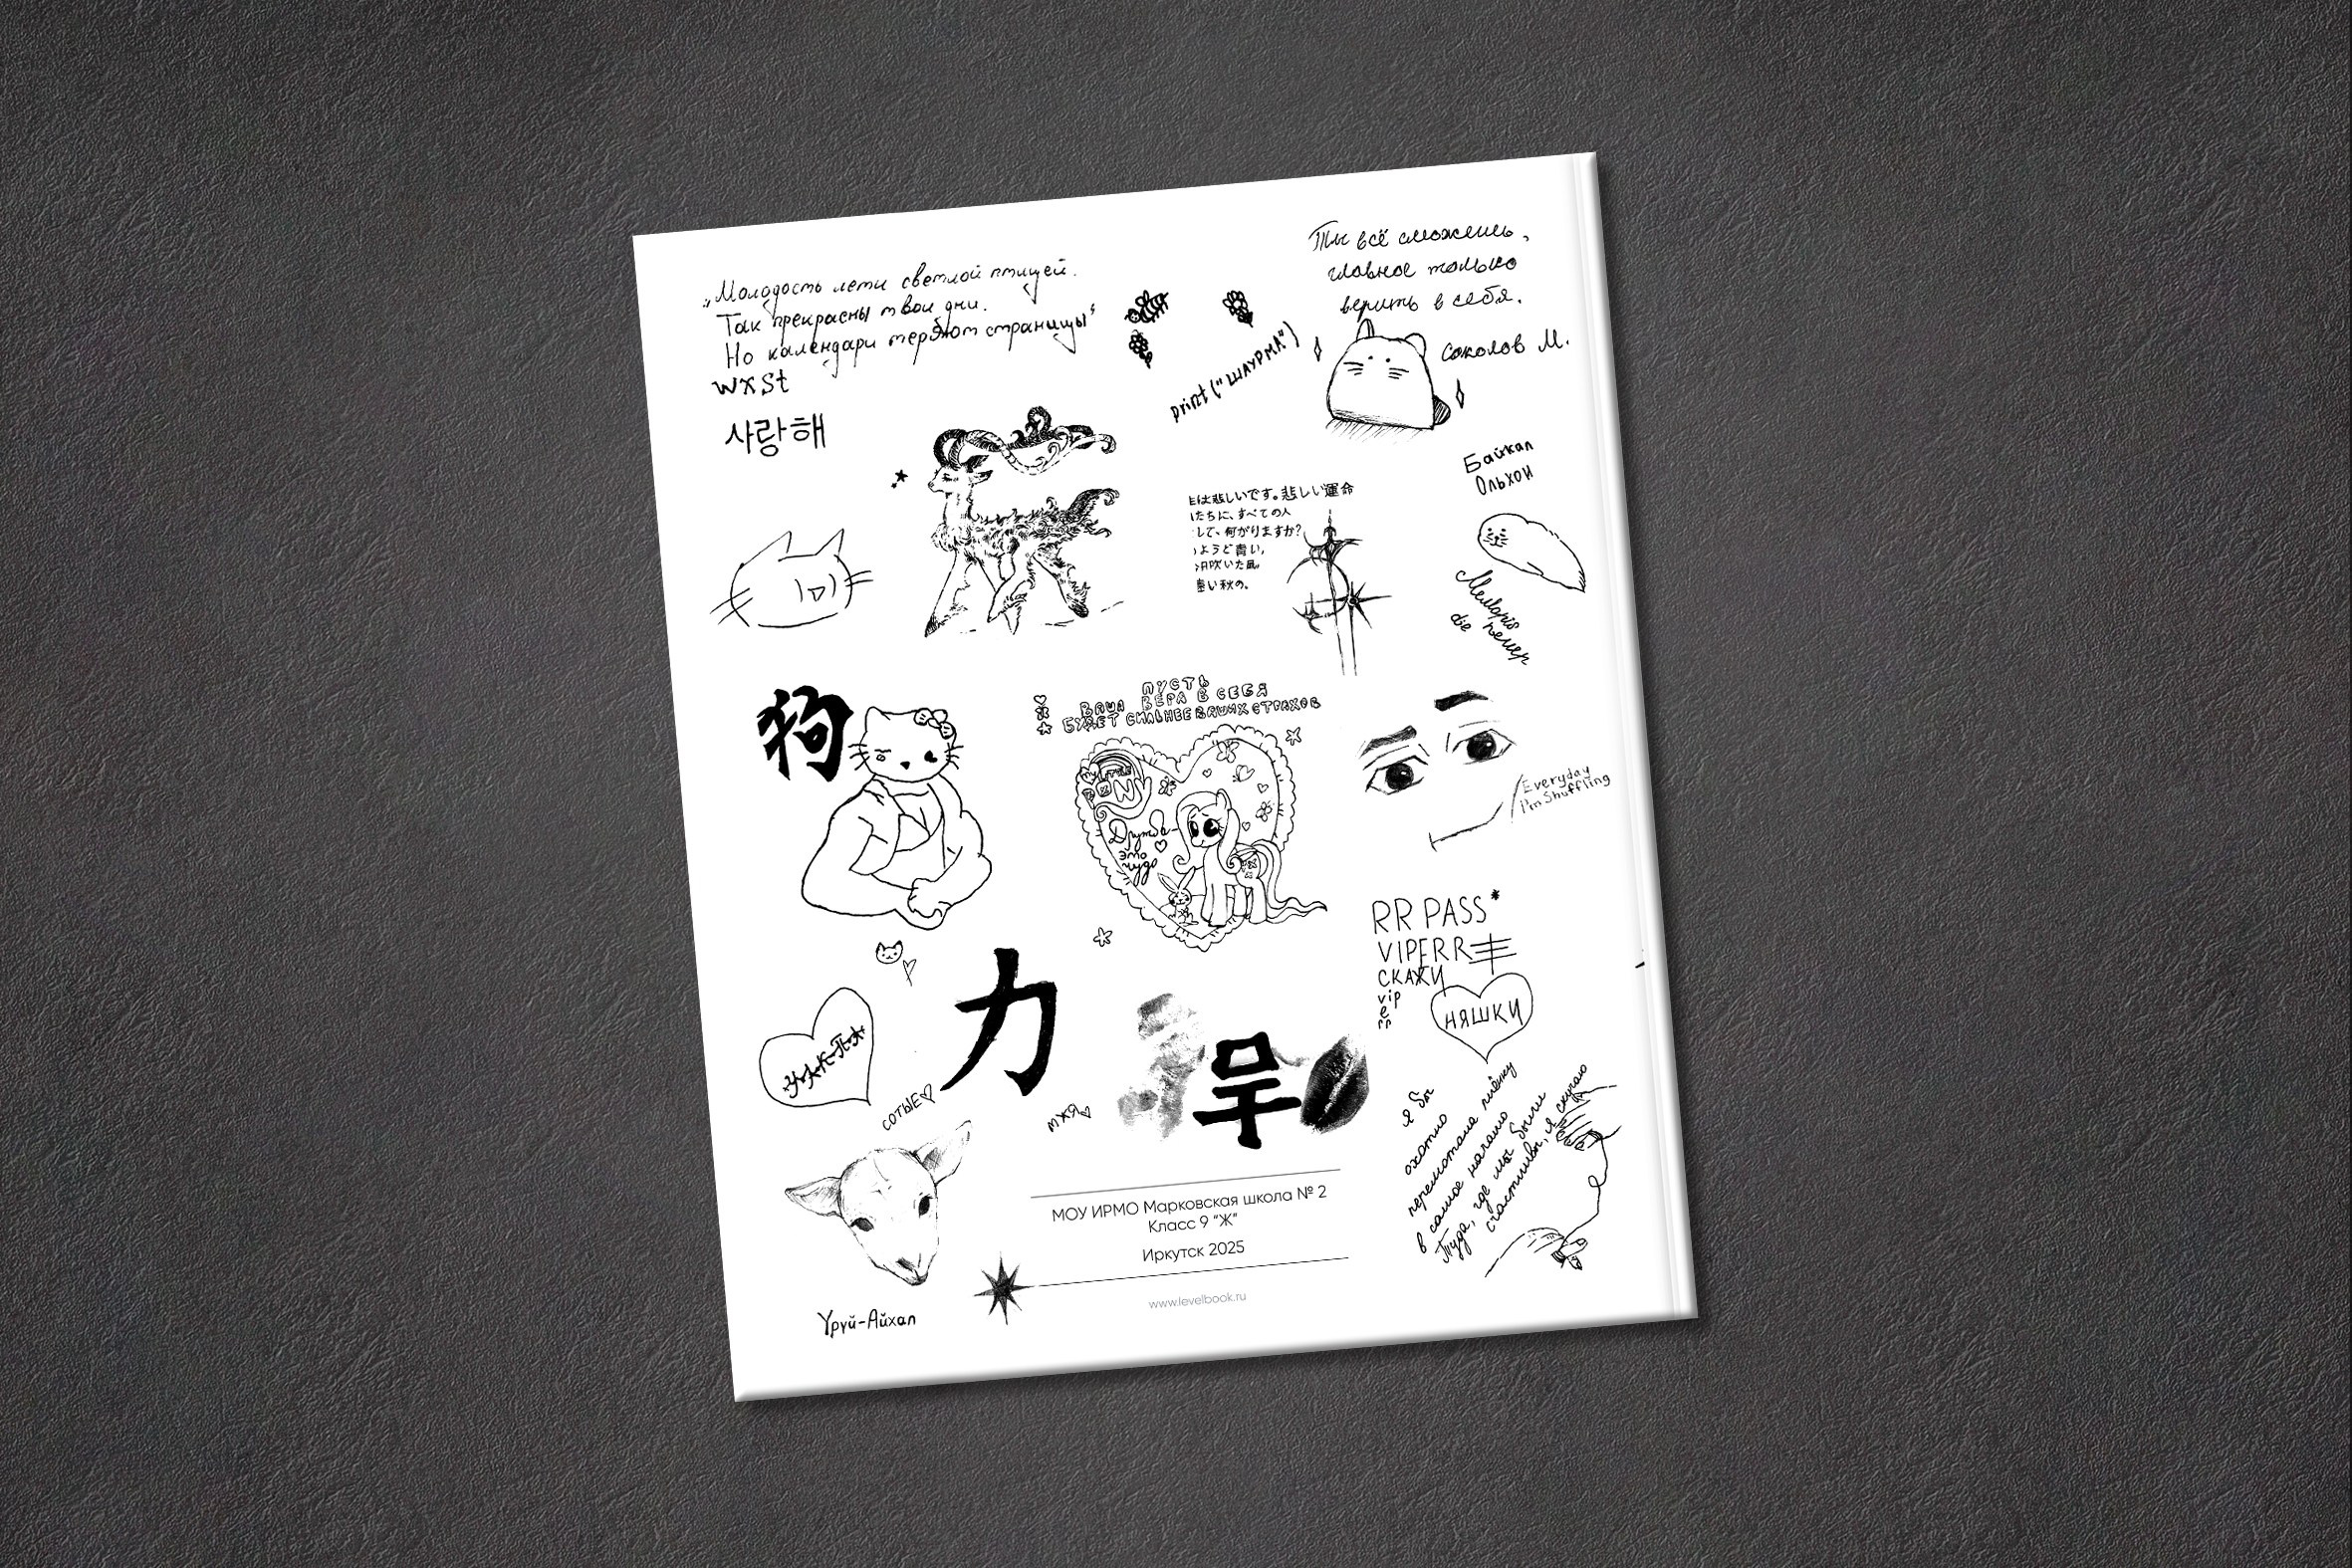 „Молодость лети светлой птицей.
Так прекрасны твои дни.
Но календари теряют страницы“
wxst
사랑해
print("ШАУРМА")
Ты всё сможешь,
главное только
верить в себя.
Соколов М.
は悲しいです。悲しい運命
たちに、すべての人
して、何がりますか?
ようど青い,
吹いた風
い秋の。
Байкал
Ольхон
de
狗
ПУСТЬ
ВАША ВЕРА В СЕБЯ
БУДЕТ СИЛЬНЕЕ ВАШИХ СТРАХОВ
PONY
Дружба-
это
чудо
Everyday
I'm Shuffling
RR PASS*
VIPERR
СКАЖИ
vip
НЯШКИ
力
СОТЫЕ
МЖЯ
я бы
охотно
перемотала плёнку
в самое начало
Туда, где мы были
счастливы, я скучаю
МОУ ИРМО Марковская школа № 2
Класс 9 "Ж"
Иркутск 2025
www.levelbook.ru
Уруй-Айхал